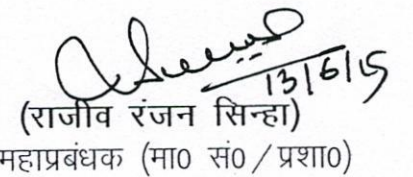 13/6/15
(राजीव रंजन सिन्हा)
महाप्रबंधक (मा0 सं0/प्रशा0)